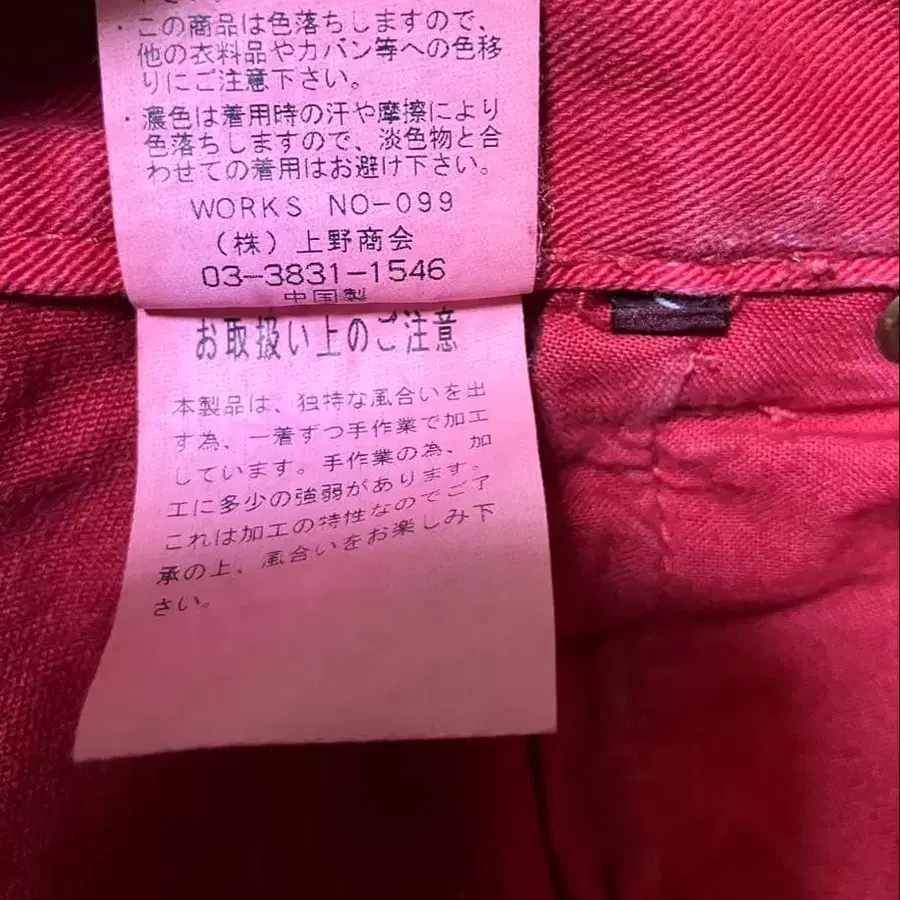 ・この商品は色落ちしますので、
他の衣料品やカバン等への色移
りにご注意下さい。
・濃色は着用時の汗や摩擦により
色落ちしますので、淡色物と合
わせての着用はお避け下さい。
WORKS NO-099
(株)上野商会
03-3831-1546
中国製
お取扱い上のご注意
本製品は、独特な風合いを出
す為、一着ずつ手作業で加工
しています。手作業の為、加
工に多少の強弱があります。
これは加工の特性なのでご了
承の上、風合いをお楽しみ下
さい。